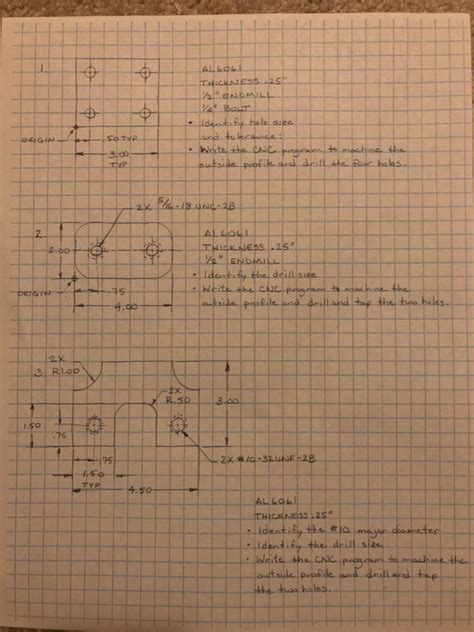 1.
AL6061
THICKNESS .25"
1/2" ENDMILL
1/4" BOLT
• Identify hole size
and tolerance:
• Write the CNC program to machine the
outside profile and drill the four holes.
ORIGIN
.50 TYP
3.00
TYP
2X 5/16-18 UNC-2B
2.
2.00
AL6061
THICKNESS .25"
1/2" ENDMILL
• Identify the drill size
• Write the CNC program to machine the
outside profile and drill and tap the two holes.
ORIGIN
.75
4.00
2X
3. R1.00
2X
R.50
3.00
1.50
.75
.75
1.50
TYP
4.50
2X #10-32UNF-2B
AL6061
THICKNESS .25"
• Identify the #10 major diameter
• Identify the drill size
• Write the CNC program to machine the
outside profile and drill and tap
the two holes.